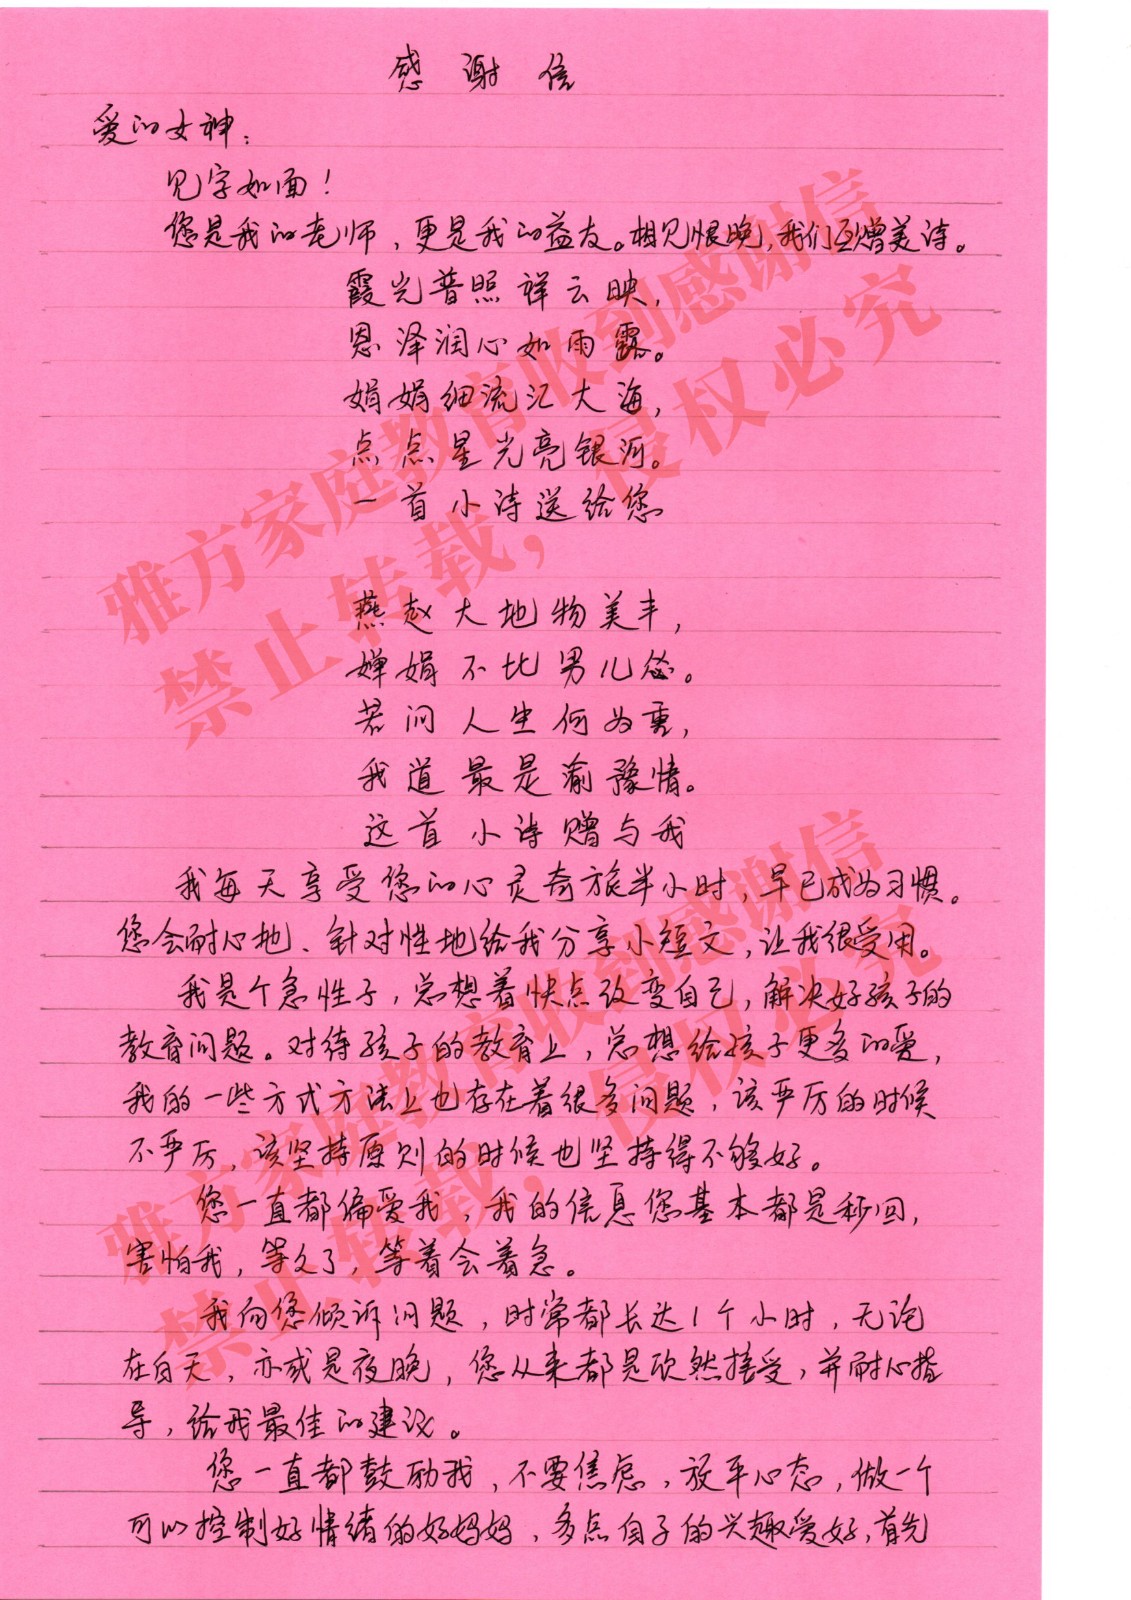 感谢信
爱的女神：
见字如面！
您是我的老师，更是我的益友。相见恨晚，我们互赠美诗。
霞光普照祥云映，
恩泽润心如雨露。
娟娟细流汇大海，
点点星光亮银河。
一首小诗送给您
燕赵大地物美丰，
婵娟不比男儿怂。
若问人生何为重，
我道最是渝豫情。
这首小诗赠与我
我每天享受您的心灵奇旅半小时，早已成为习惯。
您会耐心地、针对性地给我分享小短文，让我很受用。
我是个急性子，总想着快点改变自己，解决好孩子的
教育问题。对待孩子的教育上，总想给孩子更多的爱，
我的一些方式方法上也存在着很多问题，该严厉的时候
不严厉，该坚持原则的时候也坚持得不够好。
您一直都偏爱我，我的信息您基本都是秒回，
害怕我，等久了，等着会着急。
我向您倾诉问题，时常都长达1个小时，无论
在白天，亦或是夜晚，您从来都是欣然接受，并耐心指
导，给我最佳的建议。
您一直都鼓励我，不要焦虑，放平心态，做一个
可以控制好情绪的好妈妈，多点自子的兴趣爱好，首先
雅方家庭教育收到感谢信
禁止转载，侵权必究
雅方家庭教育收到感谢信
禁止转载，侵权必究